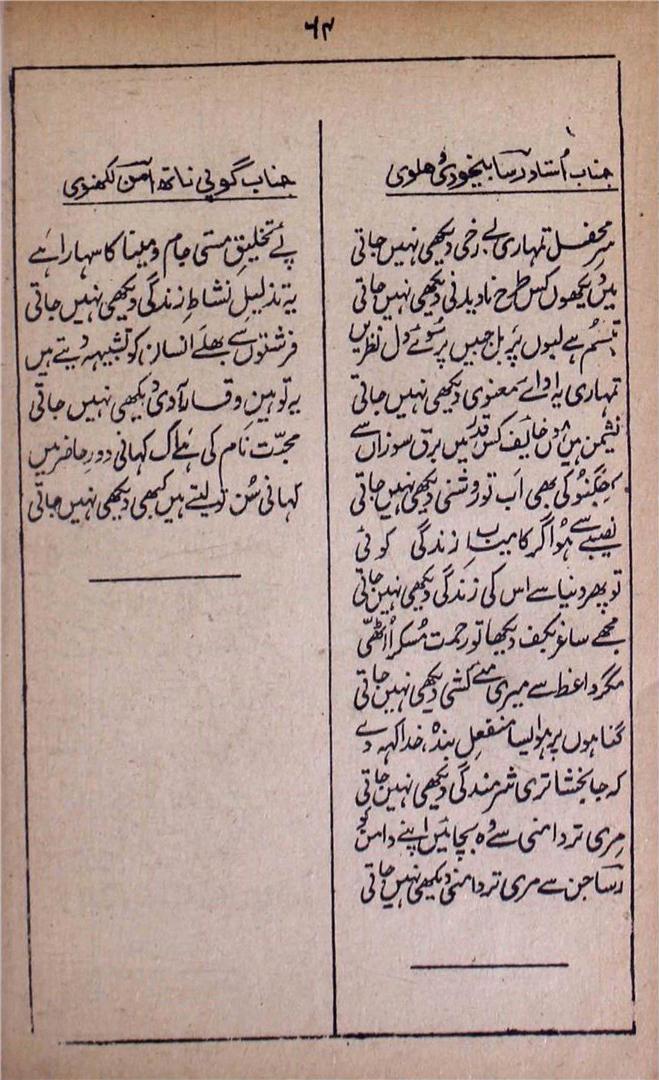 ۶۴
جناب اُستاد رسا بیخودی دہلوی
سرِ محفل تمہاری بے رُخی دیکھی نہیں جاتی
میں دیکھوں کس طرح نادیدنی دیکھی نہیں جاتی
تبسّم ہے لبوں پر بل جبیں پر سُوئے دل نظریں
تمہاری یہ ادائے معنوی دیکھی نہیں جاتی
نشیمن میں ہوں خائف کس قدر میں برقِ سوزاں سے
کہ جگنو کی بھی اب تو روشنی دیکھی نہیں جاتی
نصیبے سے ہُوا گر کامیابِ زندگی کوئی
تو پھر دنیا سے اس کی زندگی دیکھی نہیں جاتی
مجھے ساغر بکف دیکھا تو رحمت مُسکرا اُٹھی
مگر واعظ سے میری مئے کشی دیکھی نہیں جاتی
گناہوں پر ہو ایسا منفعل بندہ، خدا کہہ دے
کہ جا بخشا تری شرمندگی دیکھی نہیں جاتی
مِری تر دامنی سے وہ بچائیں اپنے دامن کو
رسا جن سے مری تر دامنی دیکھی نہیں جاتی
جناب گوپی ناتھ امن لکھنوی
پئے تخلیقِ مستی جام و مینا کا سہارا ہے
یہ تذلیلِ نشاطِ زندگی دیکھی نہیں جاتی
فرشتوں سے بھلے انسان کو تشبیہہ دیتے ہیں
یہ توہینِ وقارِ آدمی دیکھی نہیں جاتی
محبّت نام کی ہے اک کہانی دورِ حاضر میں
کہانی سُن تو لیتے ہیں کبھی دیکھی نہیں جاتی